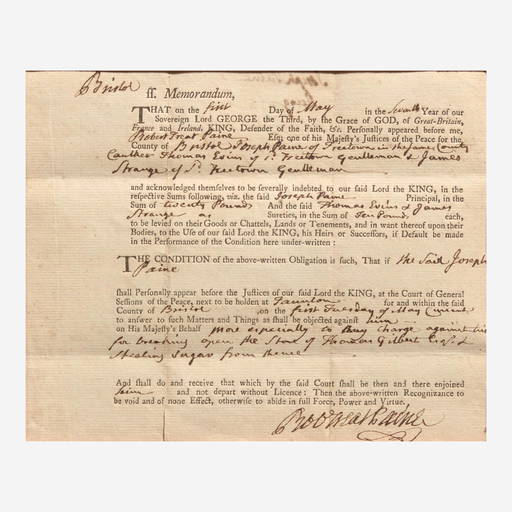 Bristol ſſ. Memorandum,
THAT on the first Day of May in the Seventh Year of our
Sovereign Lord GEORGE the Third, by the Grace of GOD, of Great-Britain,
France and Ireland, KING, Defender of the Faith, &c. Personally appeared before me,
Robert Treat Paine Esq; one of his Majesty's Justices of the Peace for the
County of Bristol Joseph Paine of Freetown in the same County
Thomas Evins of sd. Freetown Gentleman & James
Strange of sd. Freetown Gentleman
and acknowledged themselves to be severally indebted to our said Lord the KING, in the
respective Sums following, viz. the said Joseph Paine Principal, in the
Sum of twenty Pounds And the said Thomas Evins & James
Strange as Sureties, in the Sum of Ten Pound, each,
to be levied on their Goods or Chattels, Lands or Tenements, and in want thereof upon their
Bodies, to the Use of our said Lord the KING, his Heirs or Successors, if Default be made
in the Performance of the Condition here under-written:
THE CONDITION of the above-written Obligation is such, That if the said Joseph
Paine
shall Personally appear before the Justices of our said Lord the KING, at the Court of General
Sessions of the Peace, next to be holden at Taunton for and within the said
County of Bristol ,on the first Tuesday of May Current
to answer to such Matters and Things as shall be objected against him
on His Majesty's Behalf more especially to charge against him
for breaking open the Store of Thomas Gilbert Esqr. &
Stealing Sugar from thence
And shall do and receive that which by the said Court shall be then and there enjoined
him and not depart without Licence: Then the above-written Recognizance to
be void and of none Effect, otherwise to abide in full Force, Power and Virtue.
Rob Treat Paine